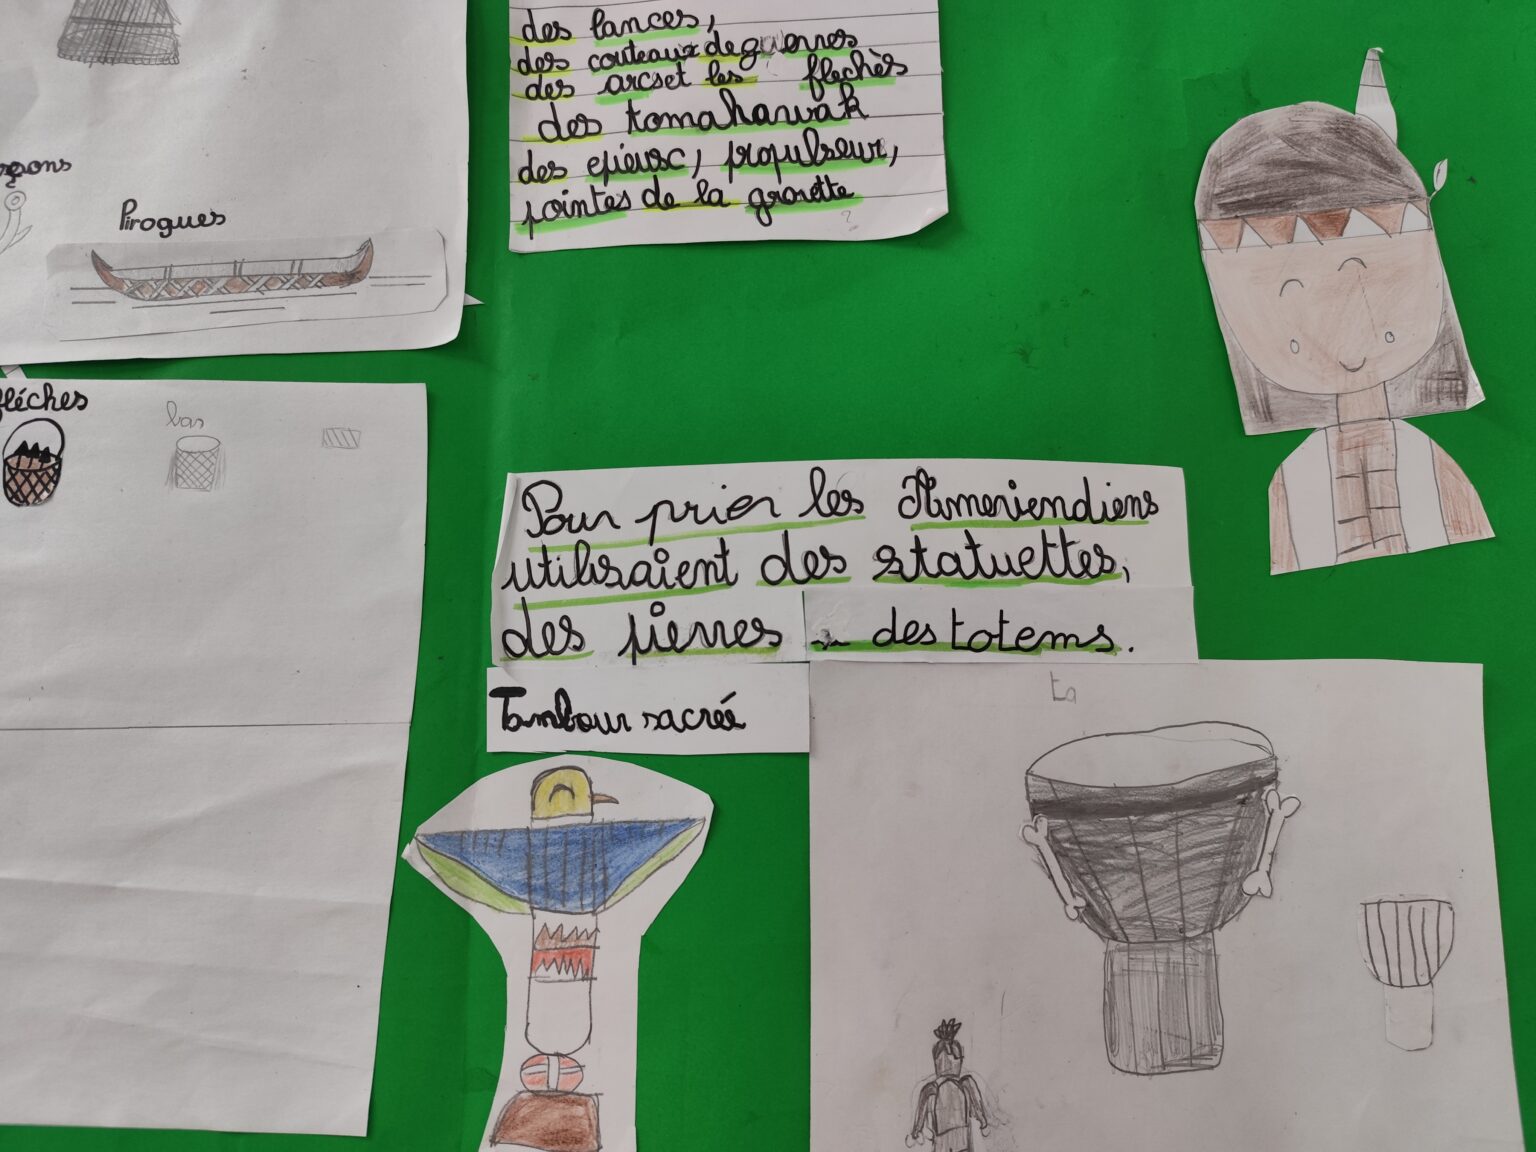 des lances,
des couteaux de guerres
des arcs et les flechès
des tomahawak
des epieux, propulseur,
pointes de la grovette
?
Pirogues
fléches
bas
Pour prier les Ameriendiens
utilisaient des statuettes,
des pierres des totems.
Tambour sacrée
ta